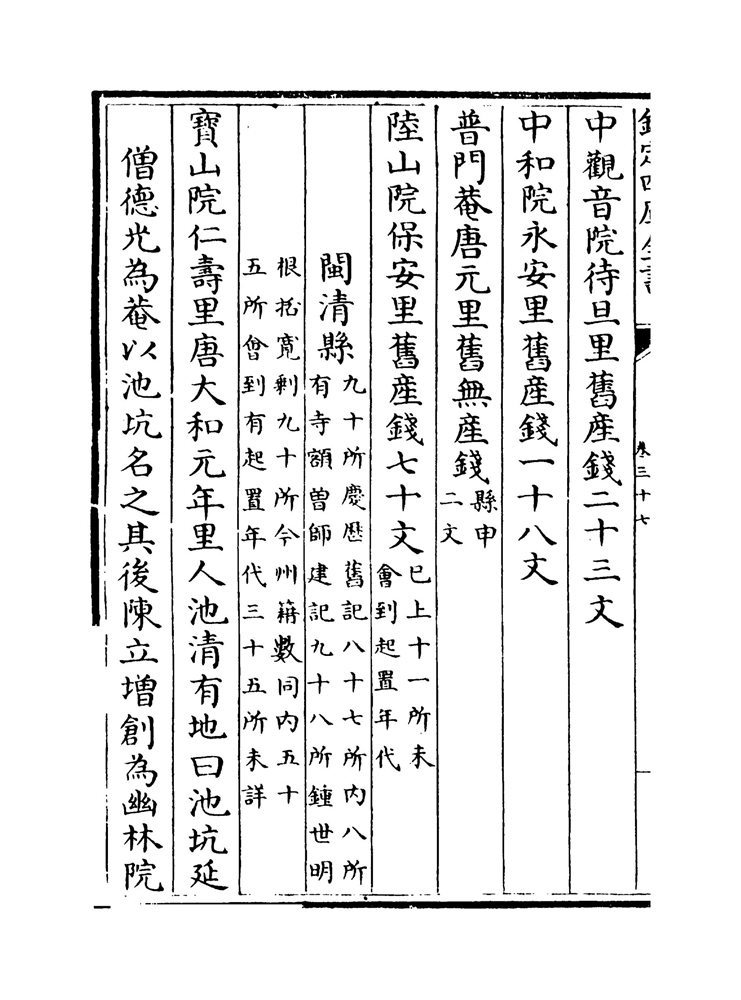 欽定四庫全書
卷三十七
中觀音院待旦里舊產錢二十三文
中和院永安里舊產錢一十八文
普門菴唐元里舊無產錢縣申二文
陸山院保安里舊產錢七十文已上十一所未會到起置年代
閩清縣九十所慶歷舊記八十七所內八所有寺額曽師建記九十八所鍾世明
根括寛剩九十所今州籍數同內五十五所會到有起置年代三十五所未詳
寳山院仁壽里唐大和元年里人池清有地曰池坑延
僧德光為菴以池坑名之其後陳立增創為幽林院